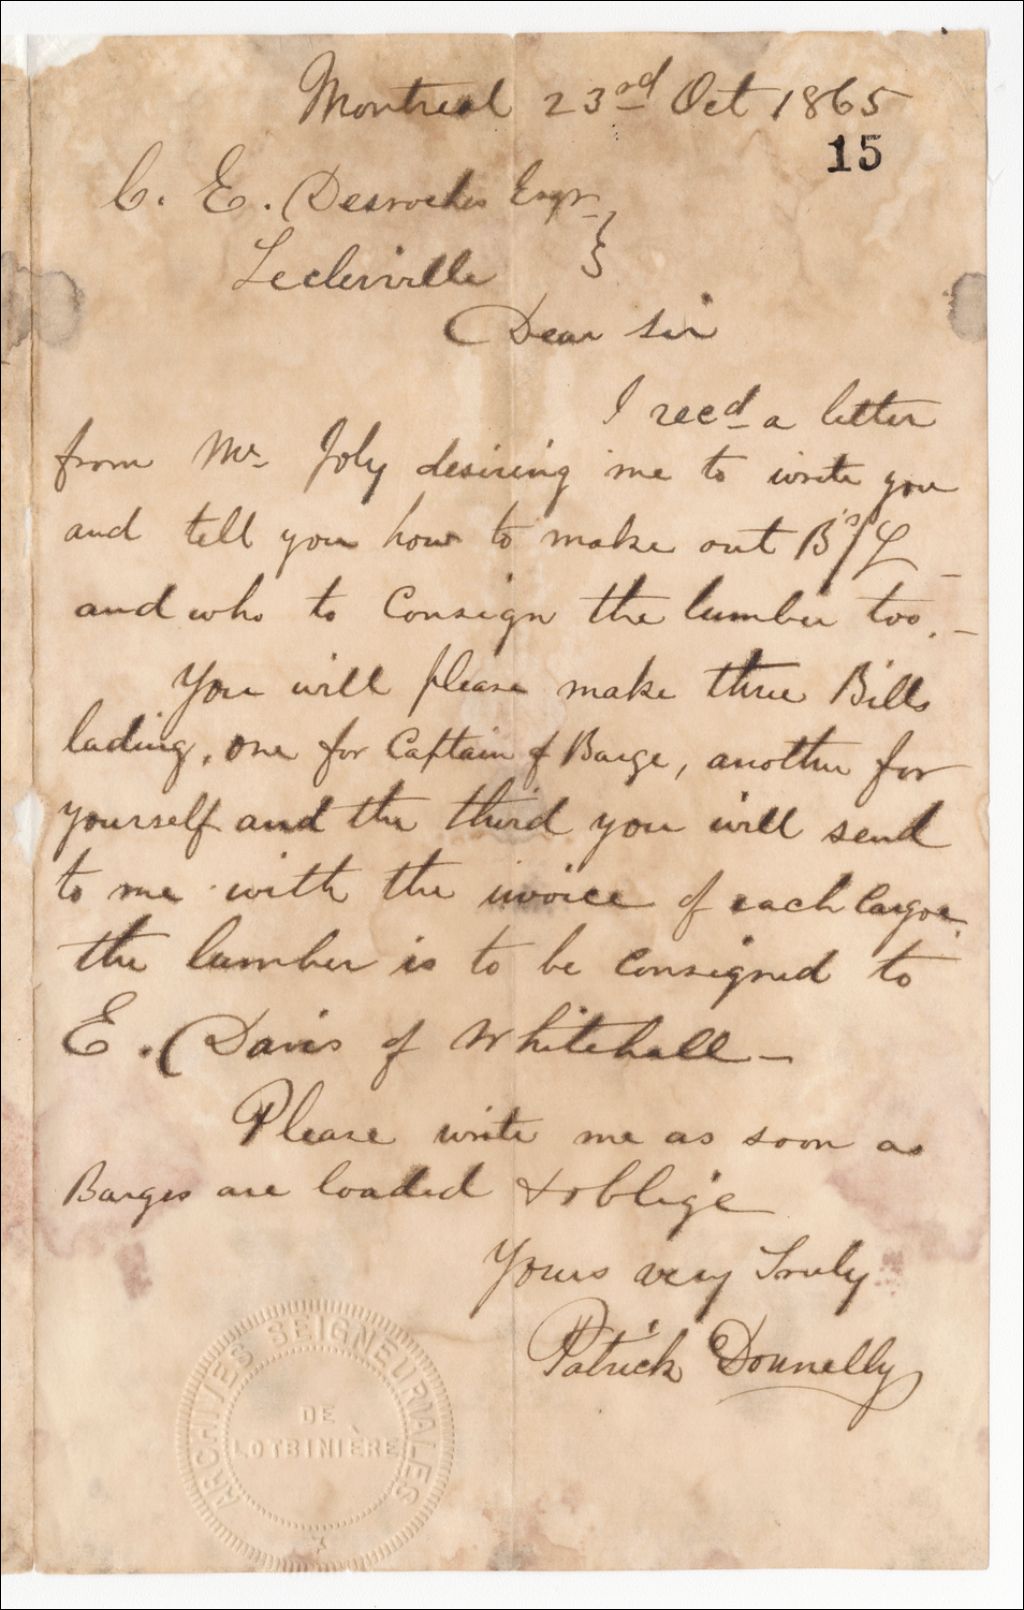 Montreal 23rd Oct 1865
15
C. E. Desroches Esqr
Leclerville
Dear Sir
I recd a letter
from Mr. Joly desiring me to write you
and tell you how to make out B's/L -
and who to Consign the lumber too. -
You will please make three Bills
lading, one for Captain of Barge, another for
yourself and the third you will send
to me with the invoice of each Cargoe.
the lumber is to be Consigned to
E. Davis of Whitehall -
Please write me as soon as
Barges are loaded & oblige
Yours very Truly
Patrick Donnelly
ARCHIVES SEIGNEURIALES
DE
LOTBINIÈRE